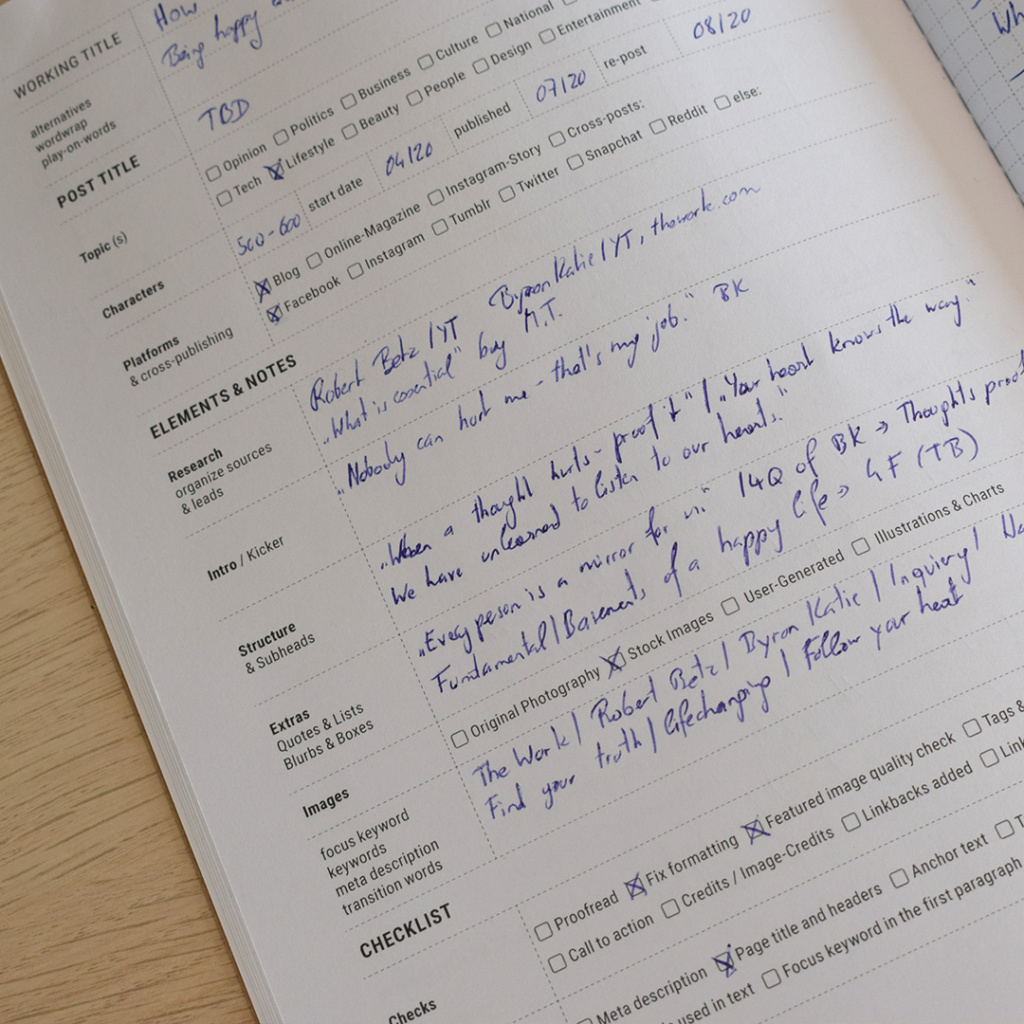 WORKING TITLE How
alternatives Being happy
wordwrap
play-on-words
POST TITLE TBD
Topic (s) ☐ Opinion ☐ Politics ☐ Business ☐ Culture ☐ National
☐ Tech ☒ Lifestyle ☐ Beauty ☐ People ☐ Design ☐ Entertainment
Characters 500-600 start date 04/20 published 07/20 re-post 08/20
Platforms ☒ Blog ☐ Online-Magazine ☐ Instagram-Story ☐ Cross-posts:
& cross-publishing ☒ Facebook ☐ Instagram ☐ Tumblr ☐ Twitter ☐ Snapchat ☐ Reddit ☐ else:
ELEMENTS & NOTES
Research Robert Betz / YT Byron Katie / YT, thework.com
organize sources „What is essential" buy M.T.
& leads
Intro / Kicker „Nobody can hurt me - that's my job." BK
Structure „When a thought hurts - proof it" / „Your heart knows the way"
& Subheads We have unlearned to listen to our hearts."
Extras „Every person is a mirror for 14Q of BK → Thoughts proof
Quotes & Lists Fundamental / of a happy life → GF (TB)
Blurbs & Boxes
Images ☐ Original Photography ☒ Stock Images ☐ User-Generated ☐ Illustrations & Charts
focus keyword The Work / Robert Betz / Byron Katie / Inquiery /
keywords Find your truth / lifechanging / Follow your heart
meta description
transition words
CHECKLIST
Checks ☐ Proofread ☒ Fix formatting ☒ Featured image quality check ☐ Tags &
☐ Call to action ☐ Credits / Image-Credits ☐ Linkbacks added ☐
Meta description ☒ Page title and headers ☐ Anchor text ☐
used in text ☐ Focus keyword in the first paragraph